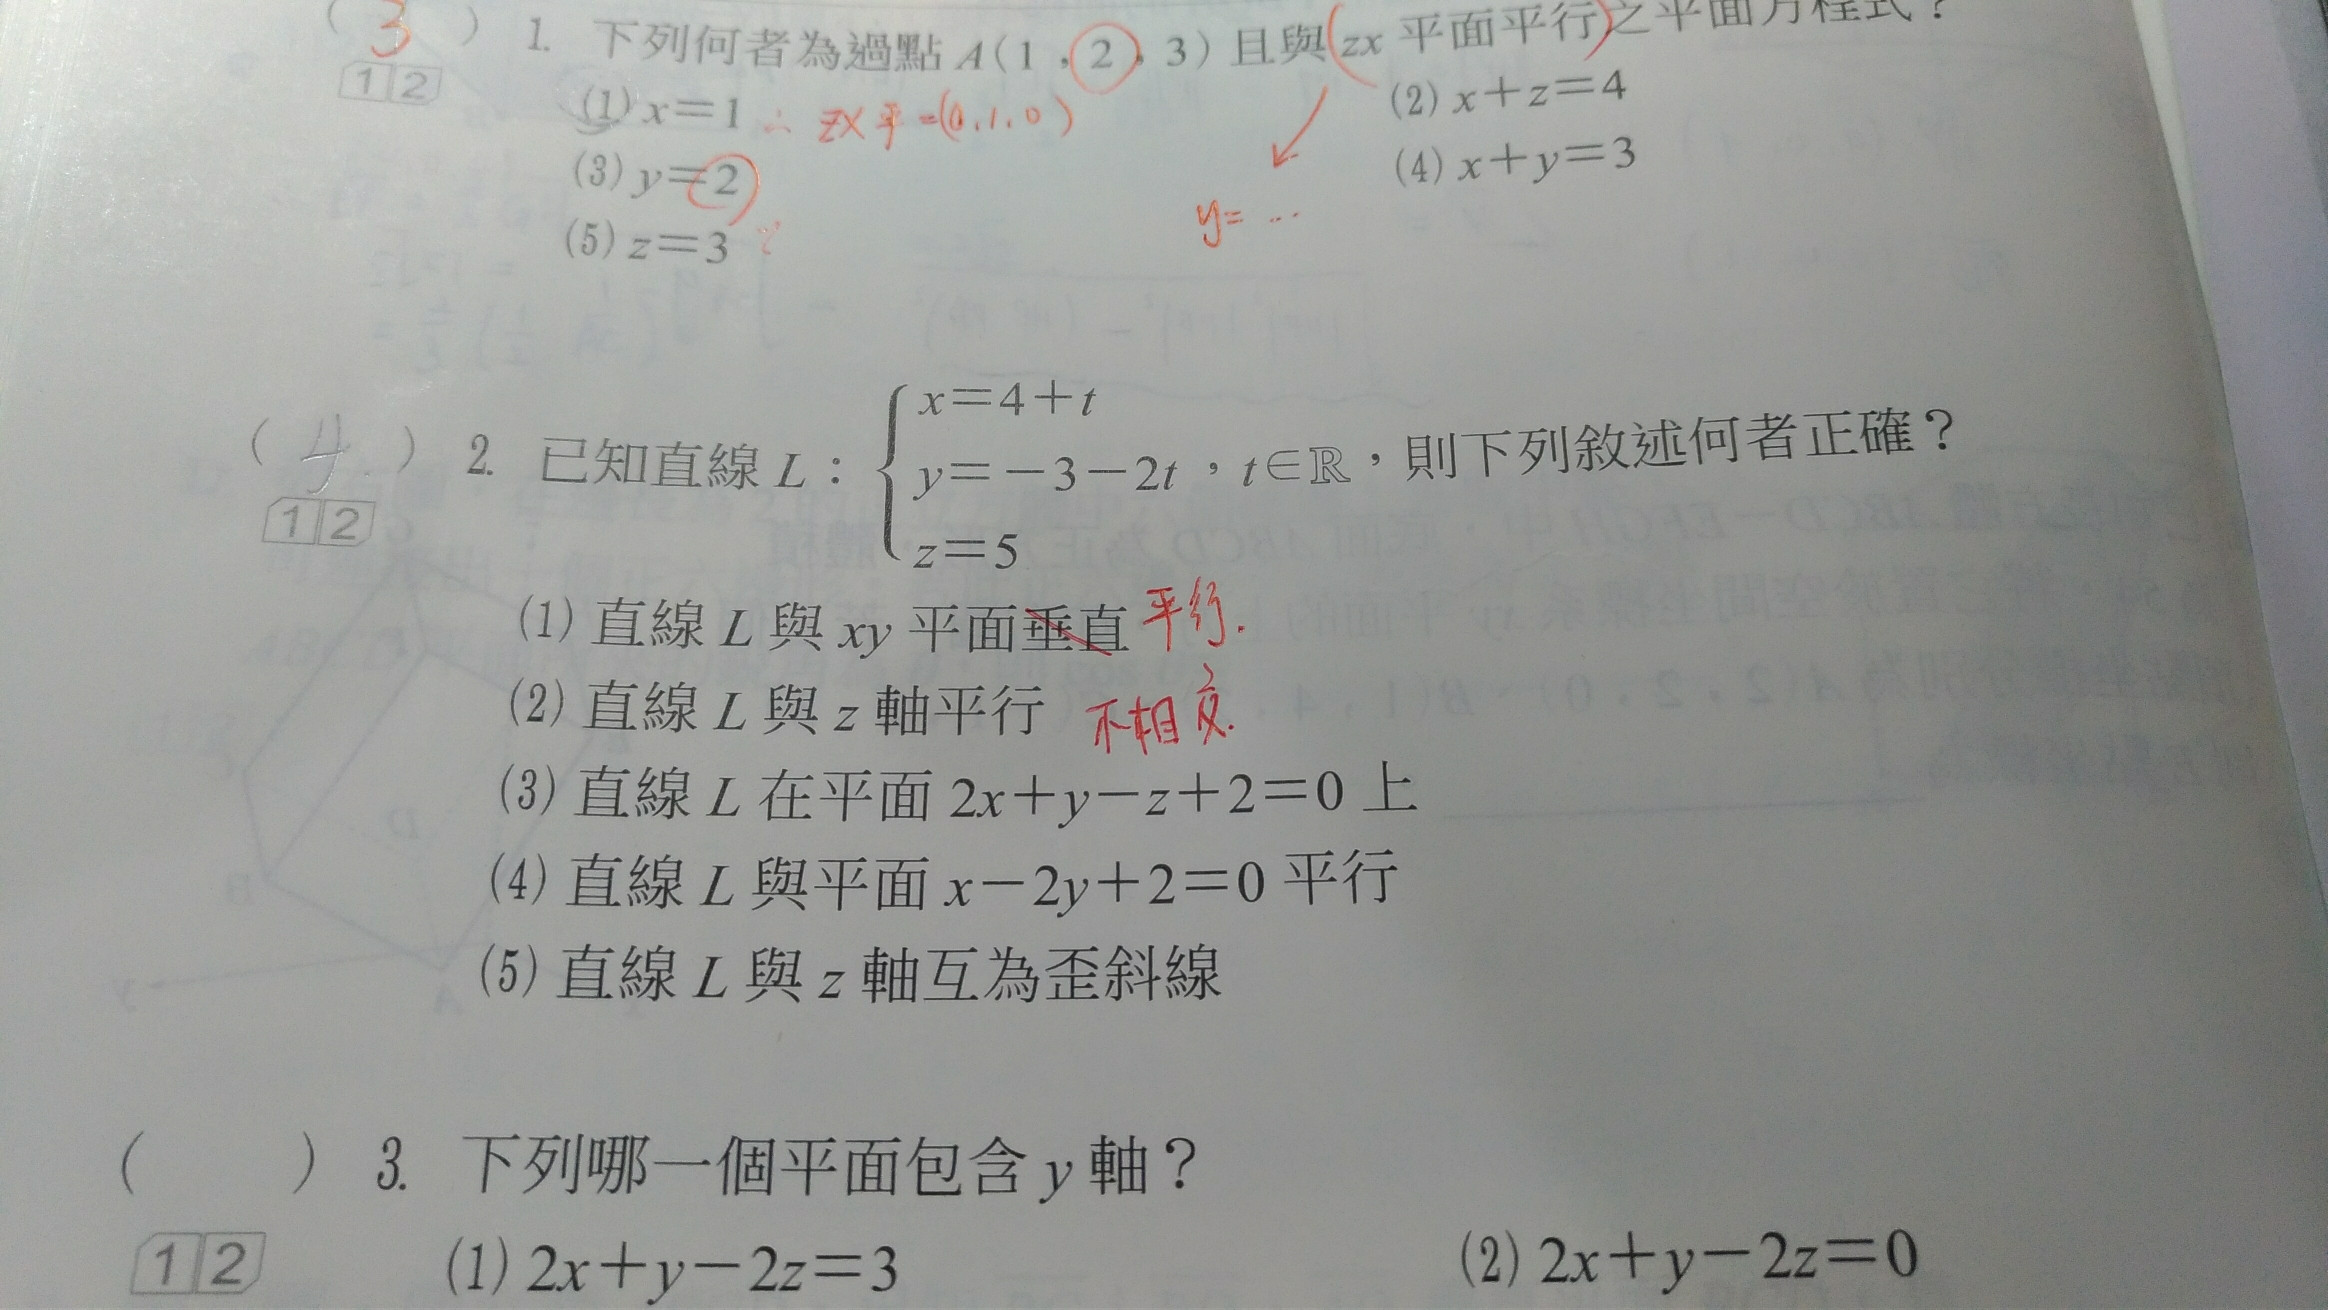 ( 3 ) 1. 下列何者為過點 A(1,2,3) 且與 zx 平面平行之平面方程式？
1 2
(1) x=1 ∴ ZX平=(0.1.0)
(2) x+z=4
(3) y=2
(4) x+y=3
(5) z=3
y= ...
( 4 ) 2. 已知直線 L：{ x=4+t
y=-3-2t，t∈ℝ，則下列敘述何者正確？
z=5
1 2
(1) 直線 L 與 xy 平面垂直 平行.
(2) 直線 L 與 z 軸平行 不相交.
(3) 直線 L 在平面 2x+y-z+2=0 上
(4) 直線 L 與平面 x-2y+2=0 平行
(5) 直線 L 與 z 軸互為歪斜線
( ) 3. 下列哪一個平面包含 y 軸？
1 2
(1) 2x+y-2z=3
(2) 2x+y-2z=0